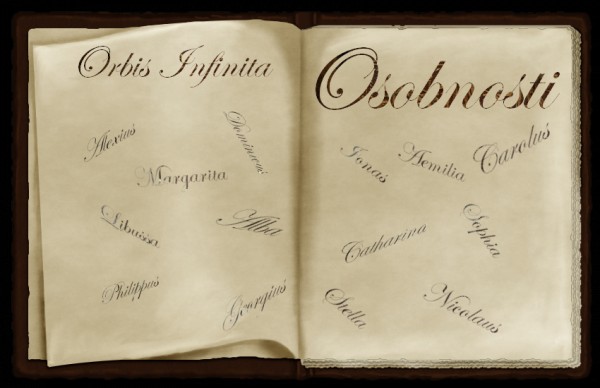 Orbis Infinita
Alexius
Dominicus
Margarita
Libussa
Alba
Philippus
Georgius
Osobnosti
Ionas
Aemilia
Carolus
Sophia
Catharina
Stella
Nicolaus